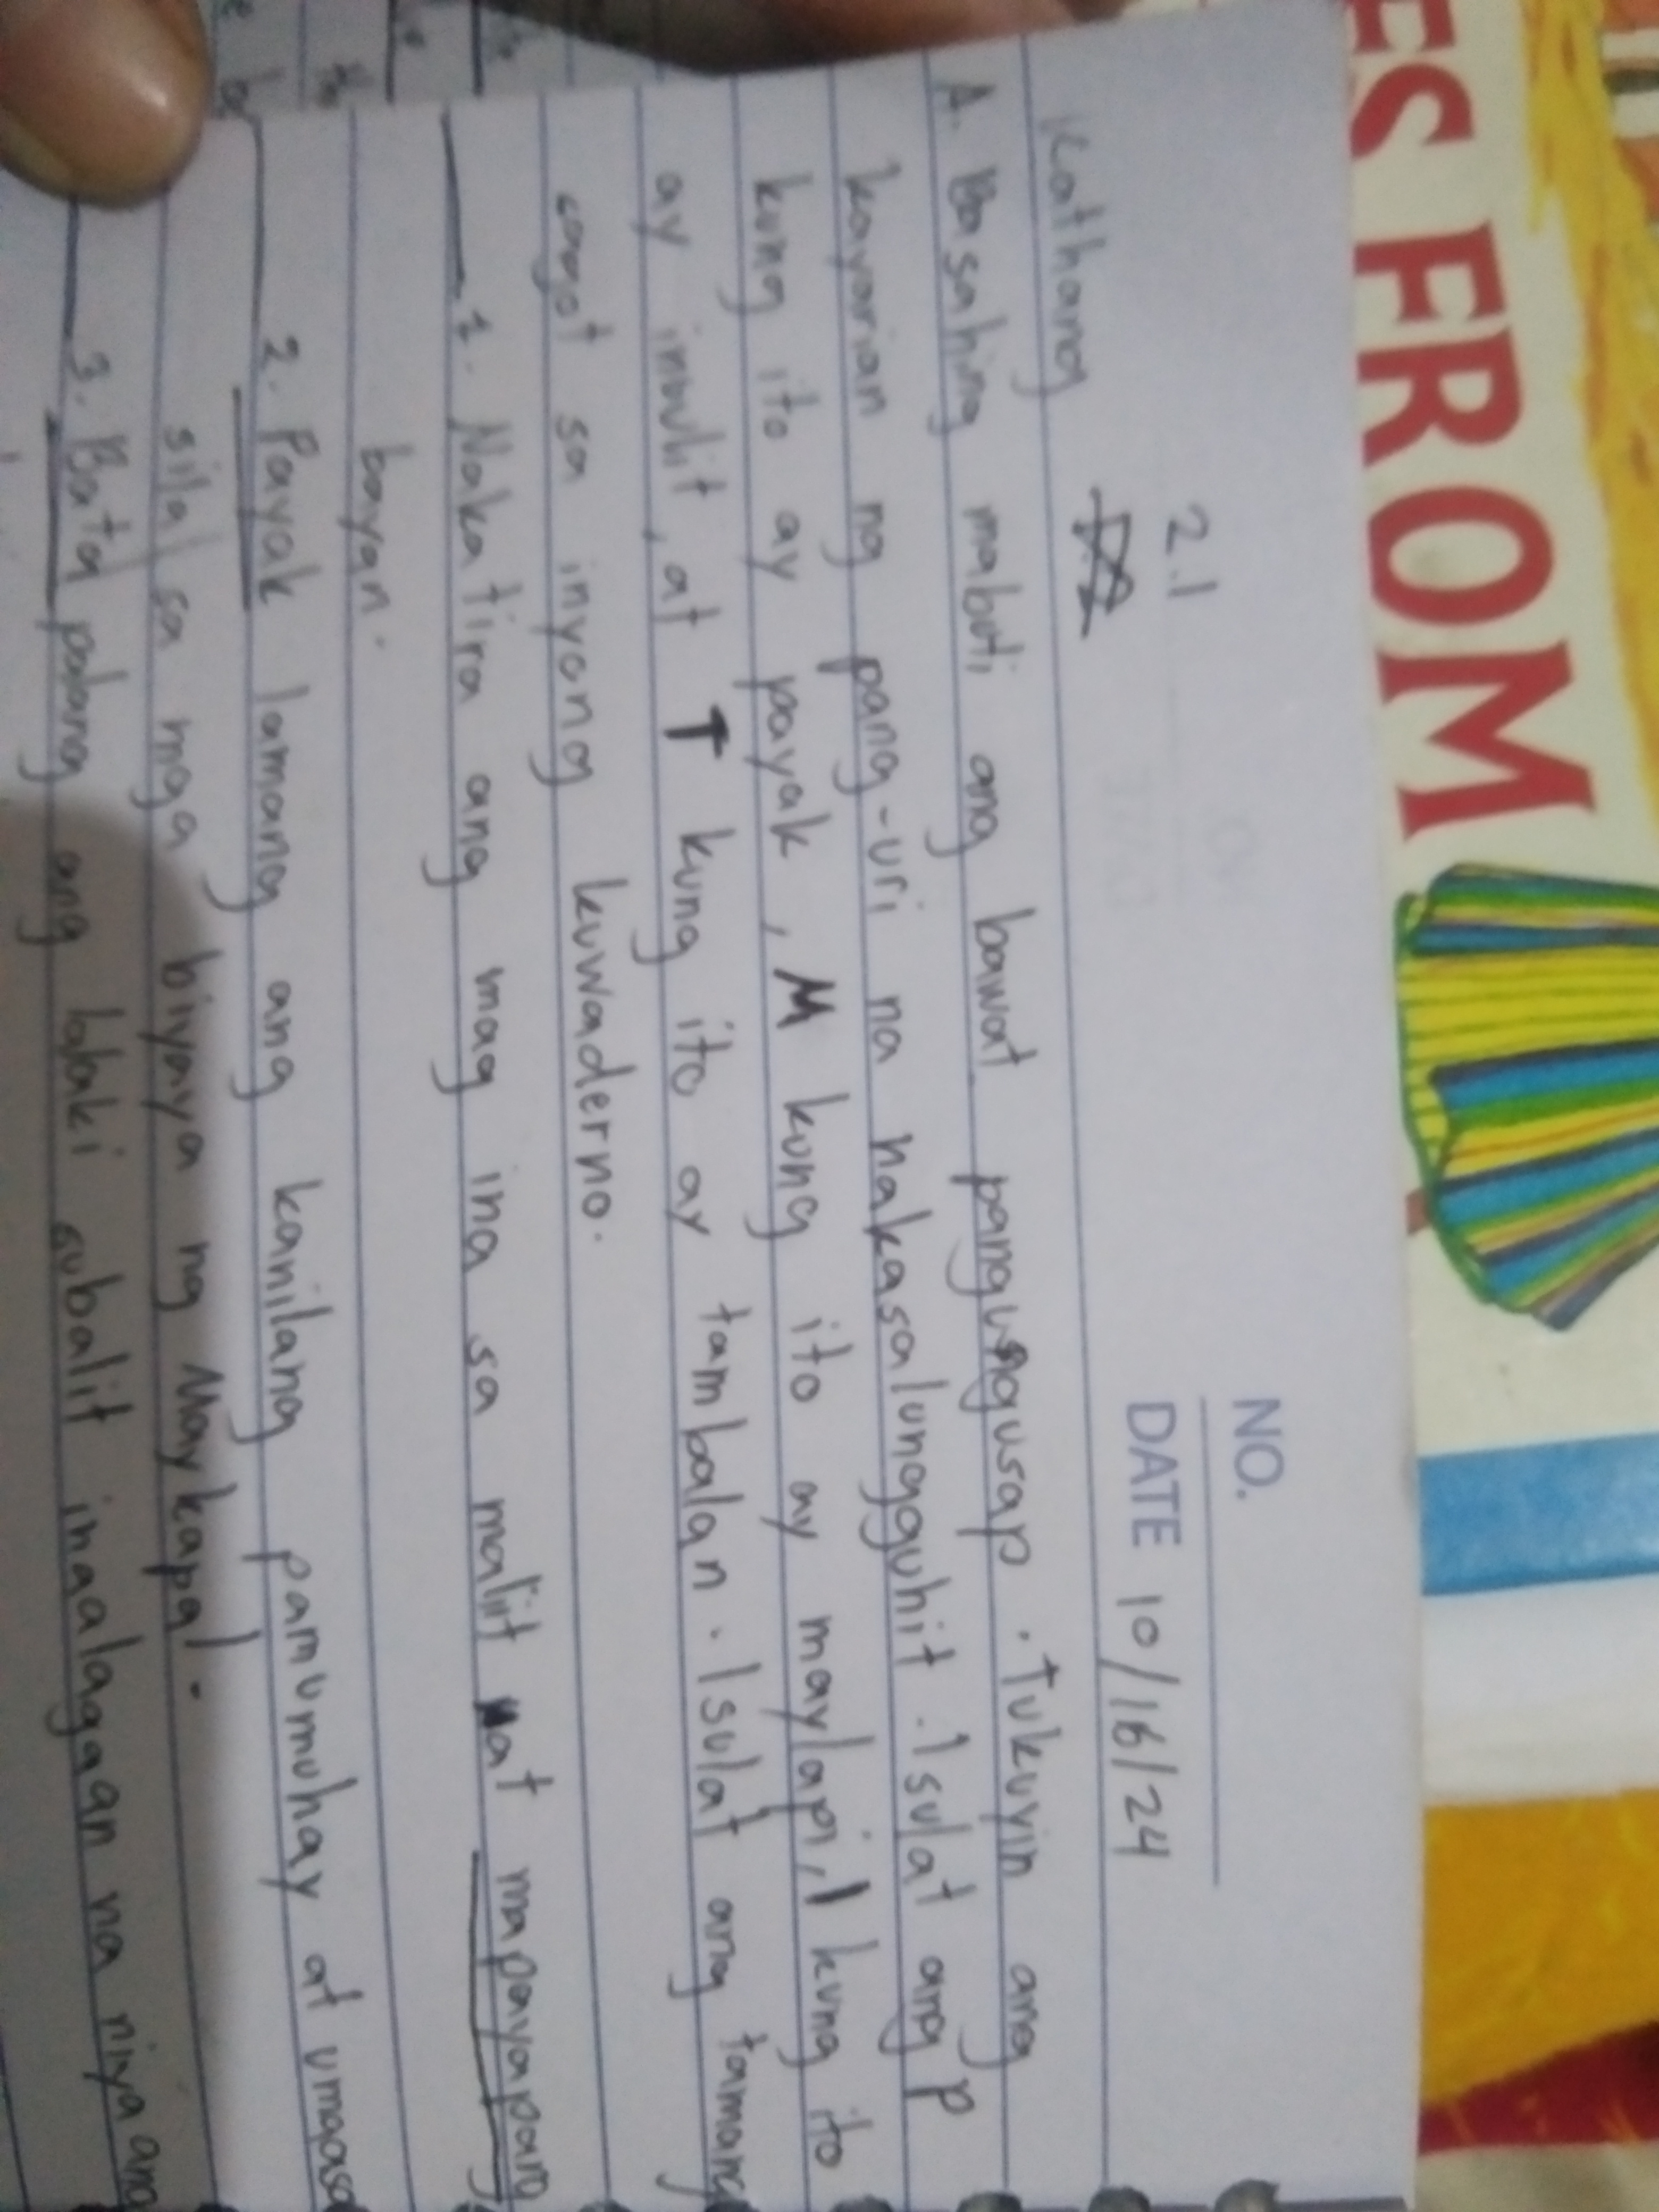 ES FROM
NO.
2.1
DATE 10/16/24
Kathang
A. Basahing mabuti ang bawat pangungusap. Tukuyin ang
kayarian ng pang-uri na nakasalungguhit. Isulat ang P
kung ito ay payak, M kung ito ay maylapi, I kung ito
ay inuulit, at T kung ito ay tambalan. Isulat ang tamang
sagot sa inyong kuwaderno.
1. Nakatira ang mag ina sa maliit at mapayapang
bayan.
2. Payak lamang ang kanilang pamumuhay at umaasa
sila sa mga biyaya ng Maykapal.
3. Bata palang ang lalaki subalit inaalagaan na niya ang